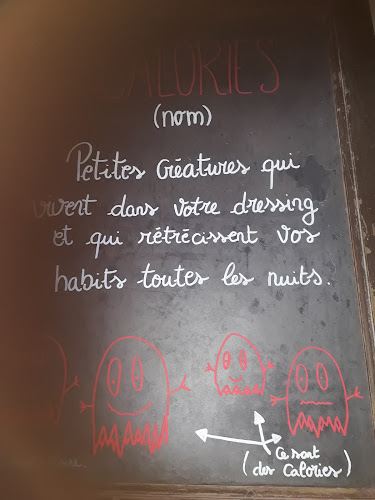 CALORIES
(nom)
Petites Créatures qui
vivent dans votre dressing
et qui rétrécissent vos
habits toutes les nuits.
Ce sont
(des Calories)